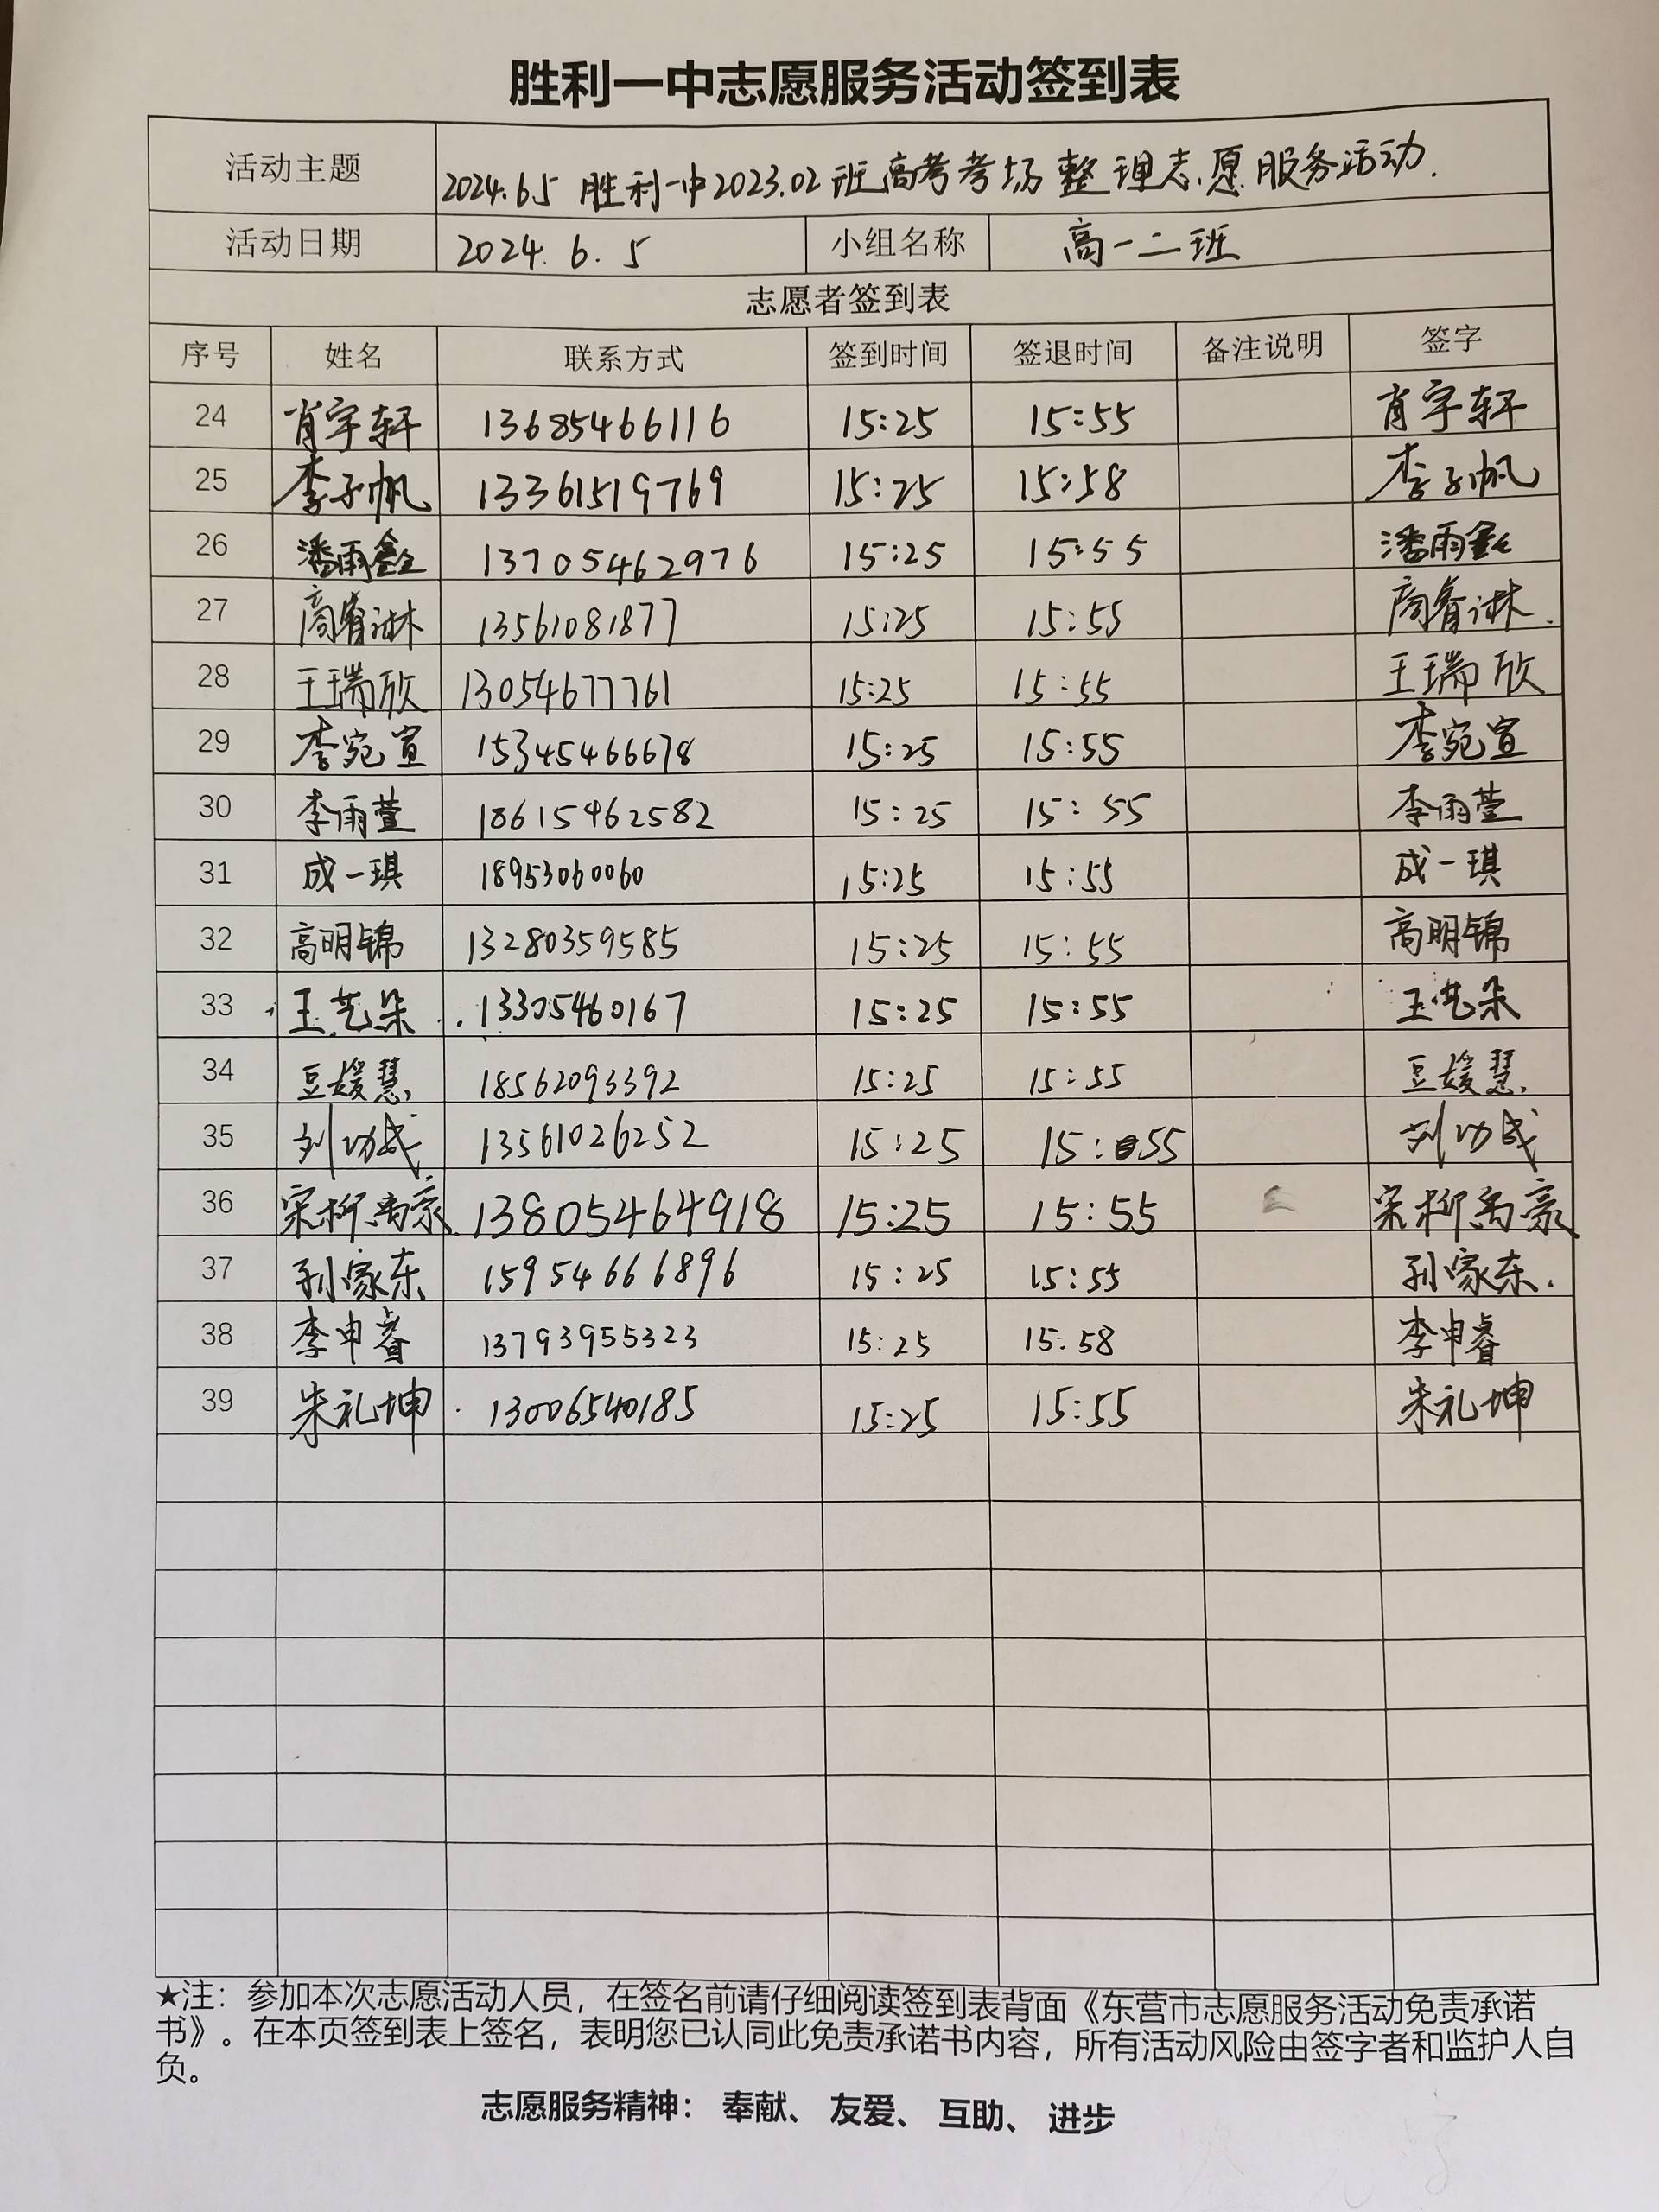 胜利一中志愿服务活动签到表
活动主题 2024.6.5 胜利一中2023.02班高考考场整理志愿服务活动.
活动日期 2024.6.5 小组名称 高一二班
志愿者签到表
序号 姓名 联系方式 签到时间 签退时间 备注说明 签字
24 肖宇轩 13685466116 15:25 15:55 肖宇轩
25 李子帆 13361519769 15:25 15:58 李子帆
26 潘雨鑫 13705462976 15:25 15:55 潘雨鑫
27 商睿淋 13561081877 15:25 15:55 商睿淋.
28 王瑞欣 13054677761 15:25 15:55 王瑞欣
29 李宛宣 15345466678 15:25 15:55 李宛宣
30 李雨萱 18615462582 15:25 15:55 李雨萱
31 成一琪 18953060060 15:25 15:55 成一琪
32 高明锦 13280359585 15:25 15:55 高明锦
33 王艺朵 13305460167 15:25 15:55 王艺朵
34 豆媛慧 18562093392 15:25 15:55 豆媛慧
35 刘功成 13561026252 15:25 15:55 刘功成
36 宋柳禹豪 13805464918 15:25 15:55 宋柳禹豪
37 孙家东 15954666896 15:25 15:55 孙家东.
38 李申睿 13793955323 15:25 15:58 李申睿
39 朱礼坤 13006540185 15:25 15:55 朱礼坤
★注：参加本次志愿活动人员，在签名前请仔细阅读签到表背面《东营市志愿服务活动免责承诺
书》。在本页签到表上签名，表明您已认同此免责承诺书内容，所有活动风险由签字者和监护人自
负。
志愿服务精神：奉献、友爱、互助、进步